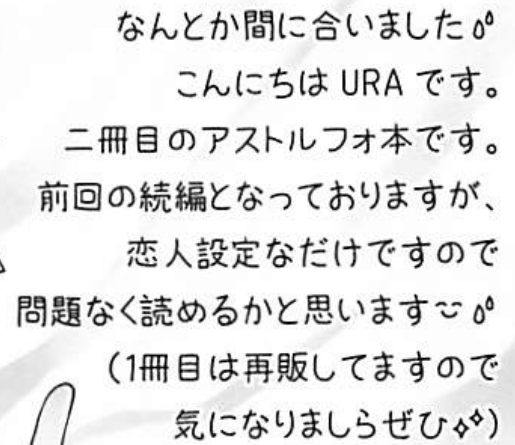 なんとか間に合いました💦
こんにちは URA です。
二冊目のアストルフォ本です。
前回の続編となっておりますが、
恋人設定なだけですので
問題なく読めるかと思います〜💦
(1冊目は再販してますので
気になりましらぜひ✧✧)